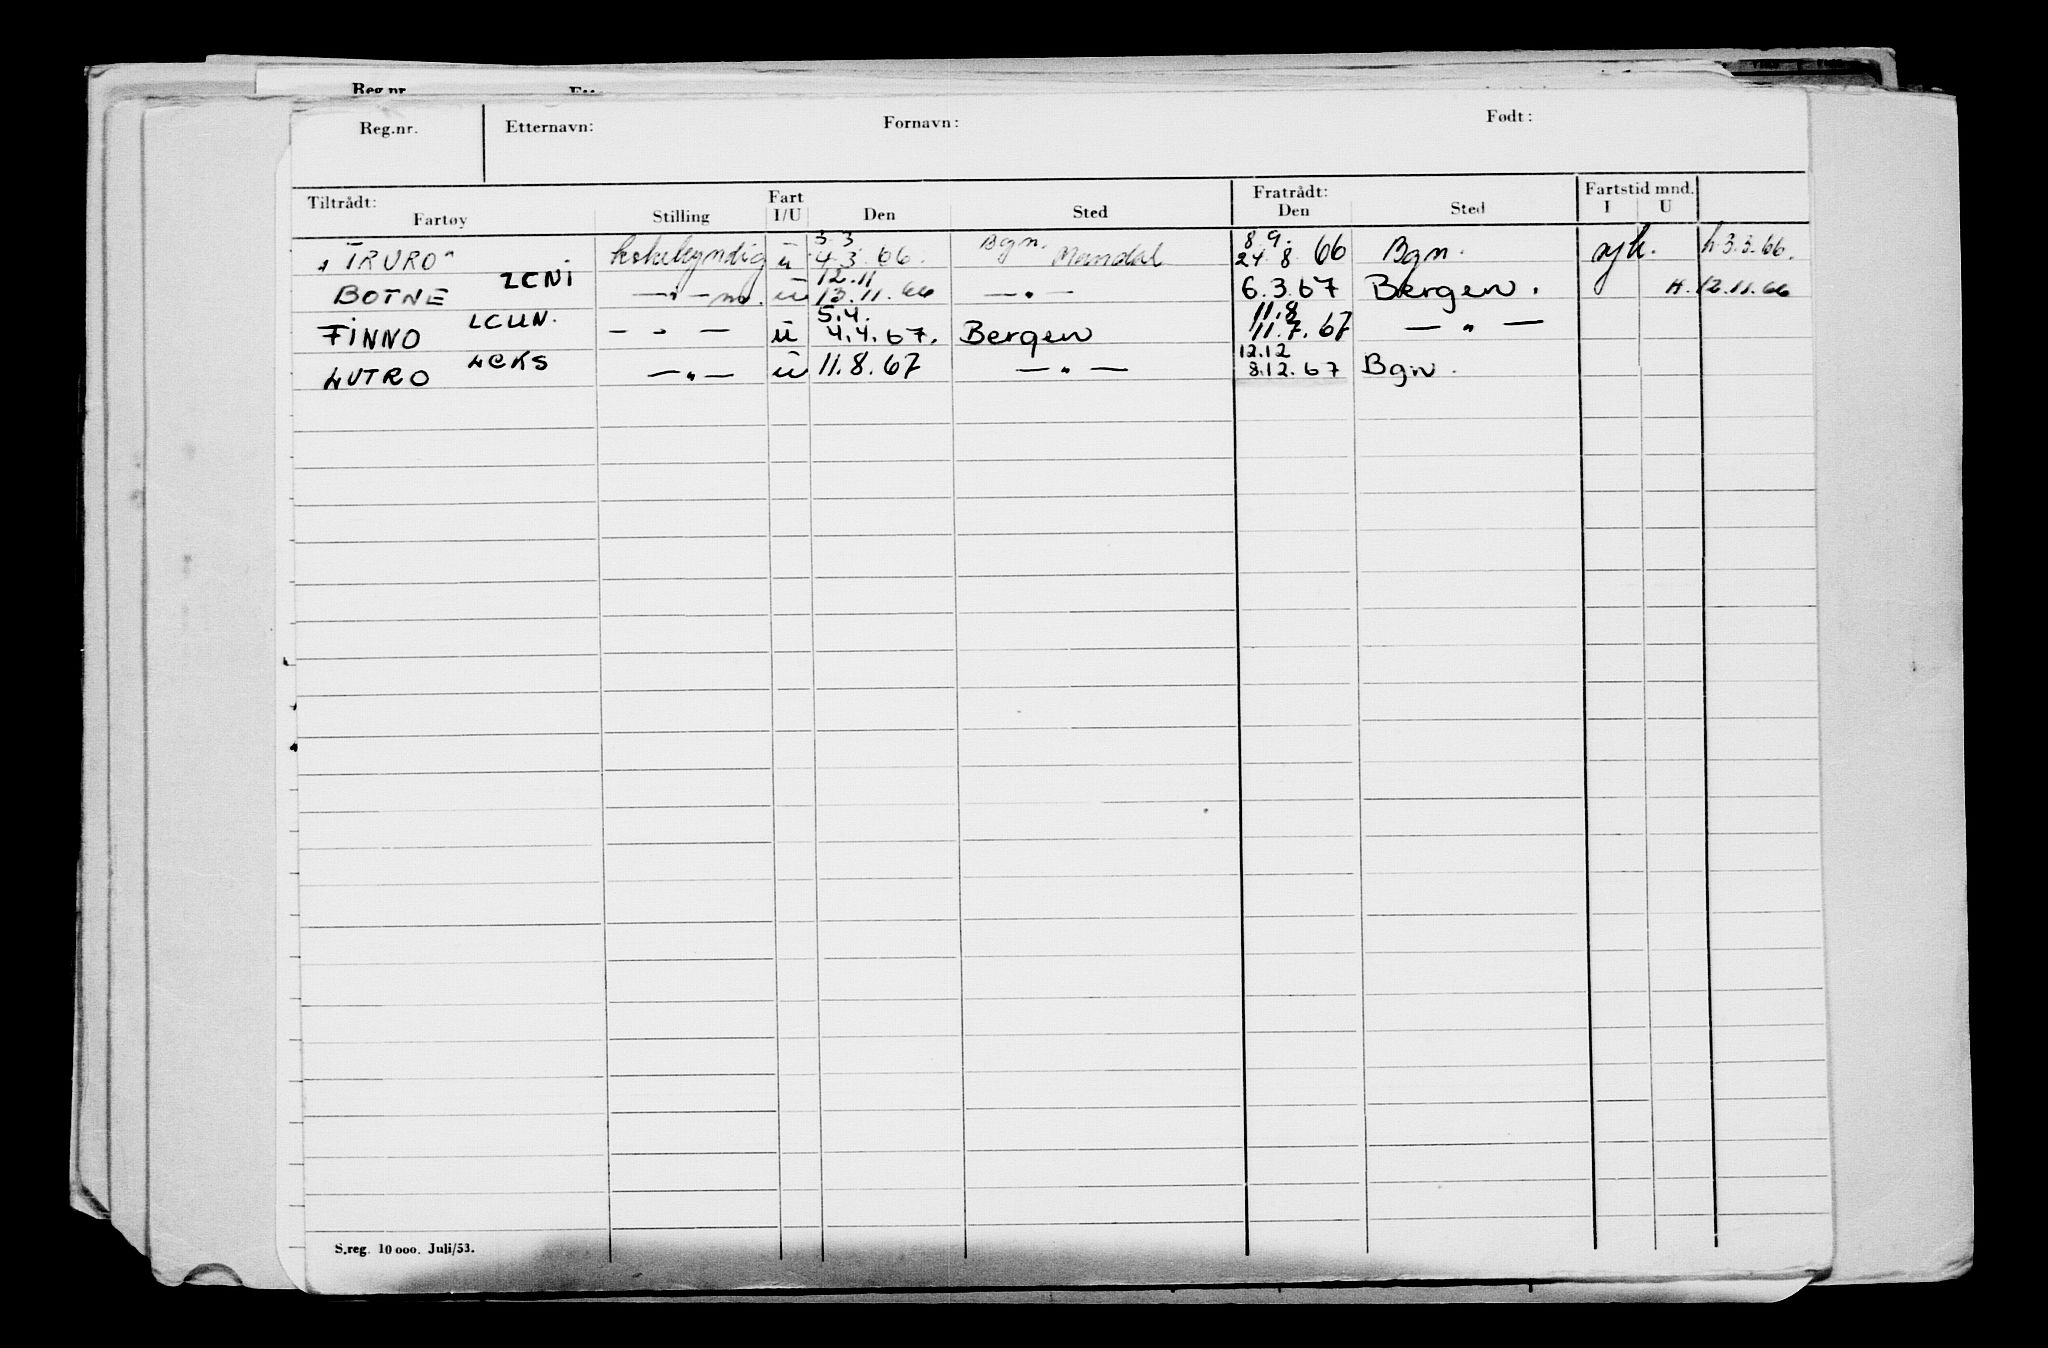 Reg.nr.
Reg.nr. Etternavn: Fornavn: Født:
Tiltrådt: Fratrådt: Fartstid mnd.
Fartøy Stilling Fart I/U Den Sted Den Sted I U
3.3 Bgn. 8.9.
"TRURO" kokekyndig u 4.3.66. Mandal 24.8.66 Bgn. syk. h 3.3.66.
LCNI 12.11
BOTNE — " — u 13.11.66 — " — 6.3.67 Bergen. H. 12.11.66
LCUN. 5.4. 11.8
FINNO — " — u 4.4.67. Bergen 11.7.67 — " —
LCKS 12.12
LUTRO — " — u 11.8.67 — " — 8.12.67 Bgn.
S.reg. 10 000. Juli/53.